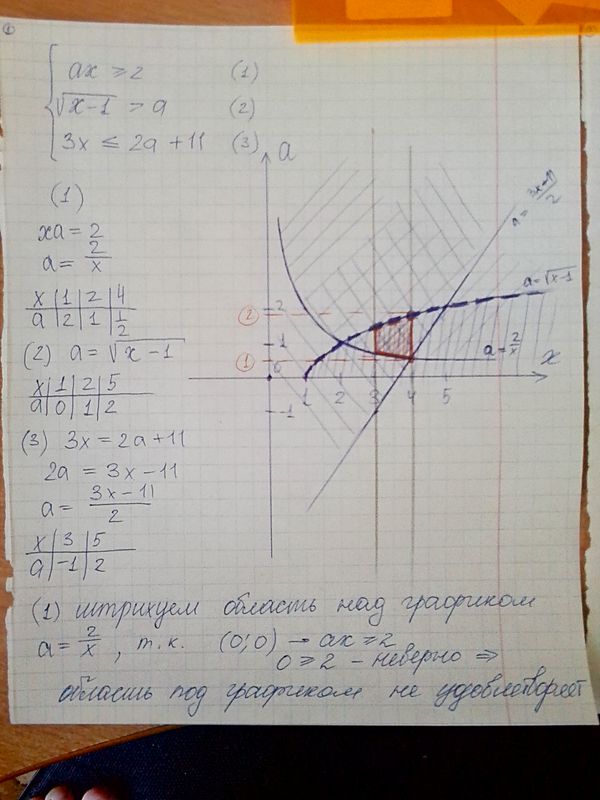 ax ≥ 2 (1)
√x-1 > a (2)
3x ≤ 2a + 11 (3)
(1)
xa = 2
a = 2/x
x | 1 | 2 | 4
a | 2 | 1 | 1/2
(2) a = √x-1
x | 1 | 2 | 5
a | 0 | 1 | 2
(3) 3x = 2a + 11
2a = 3x - 11
a = 3x - 11/2
x | 3 | 5
a | -1 | 2
a
a = 3x-11/2
a = √x-1
a = 2/x
x
2
1
0
-1
1 2 3 4 5
2
1
(1) штрихуем область над графиком
a = 2/x, т.к. (0;0) → ax ≥ 2
0 ≥ 2 – неверно ⇒
область под графиком не удовлетворяет